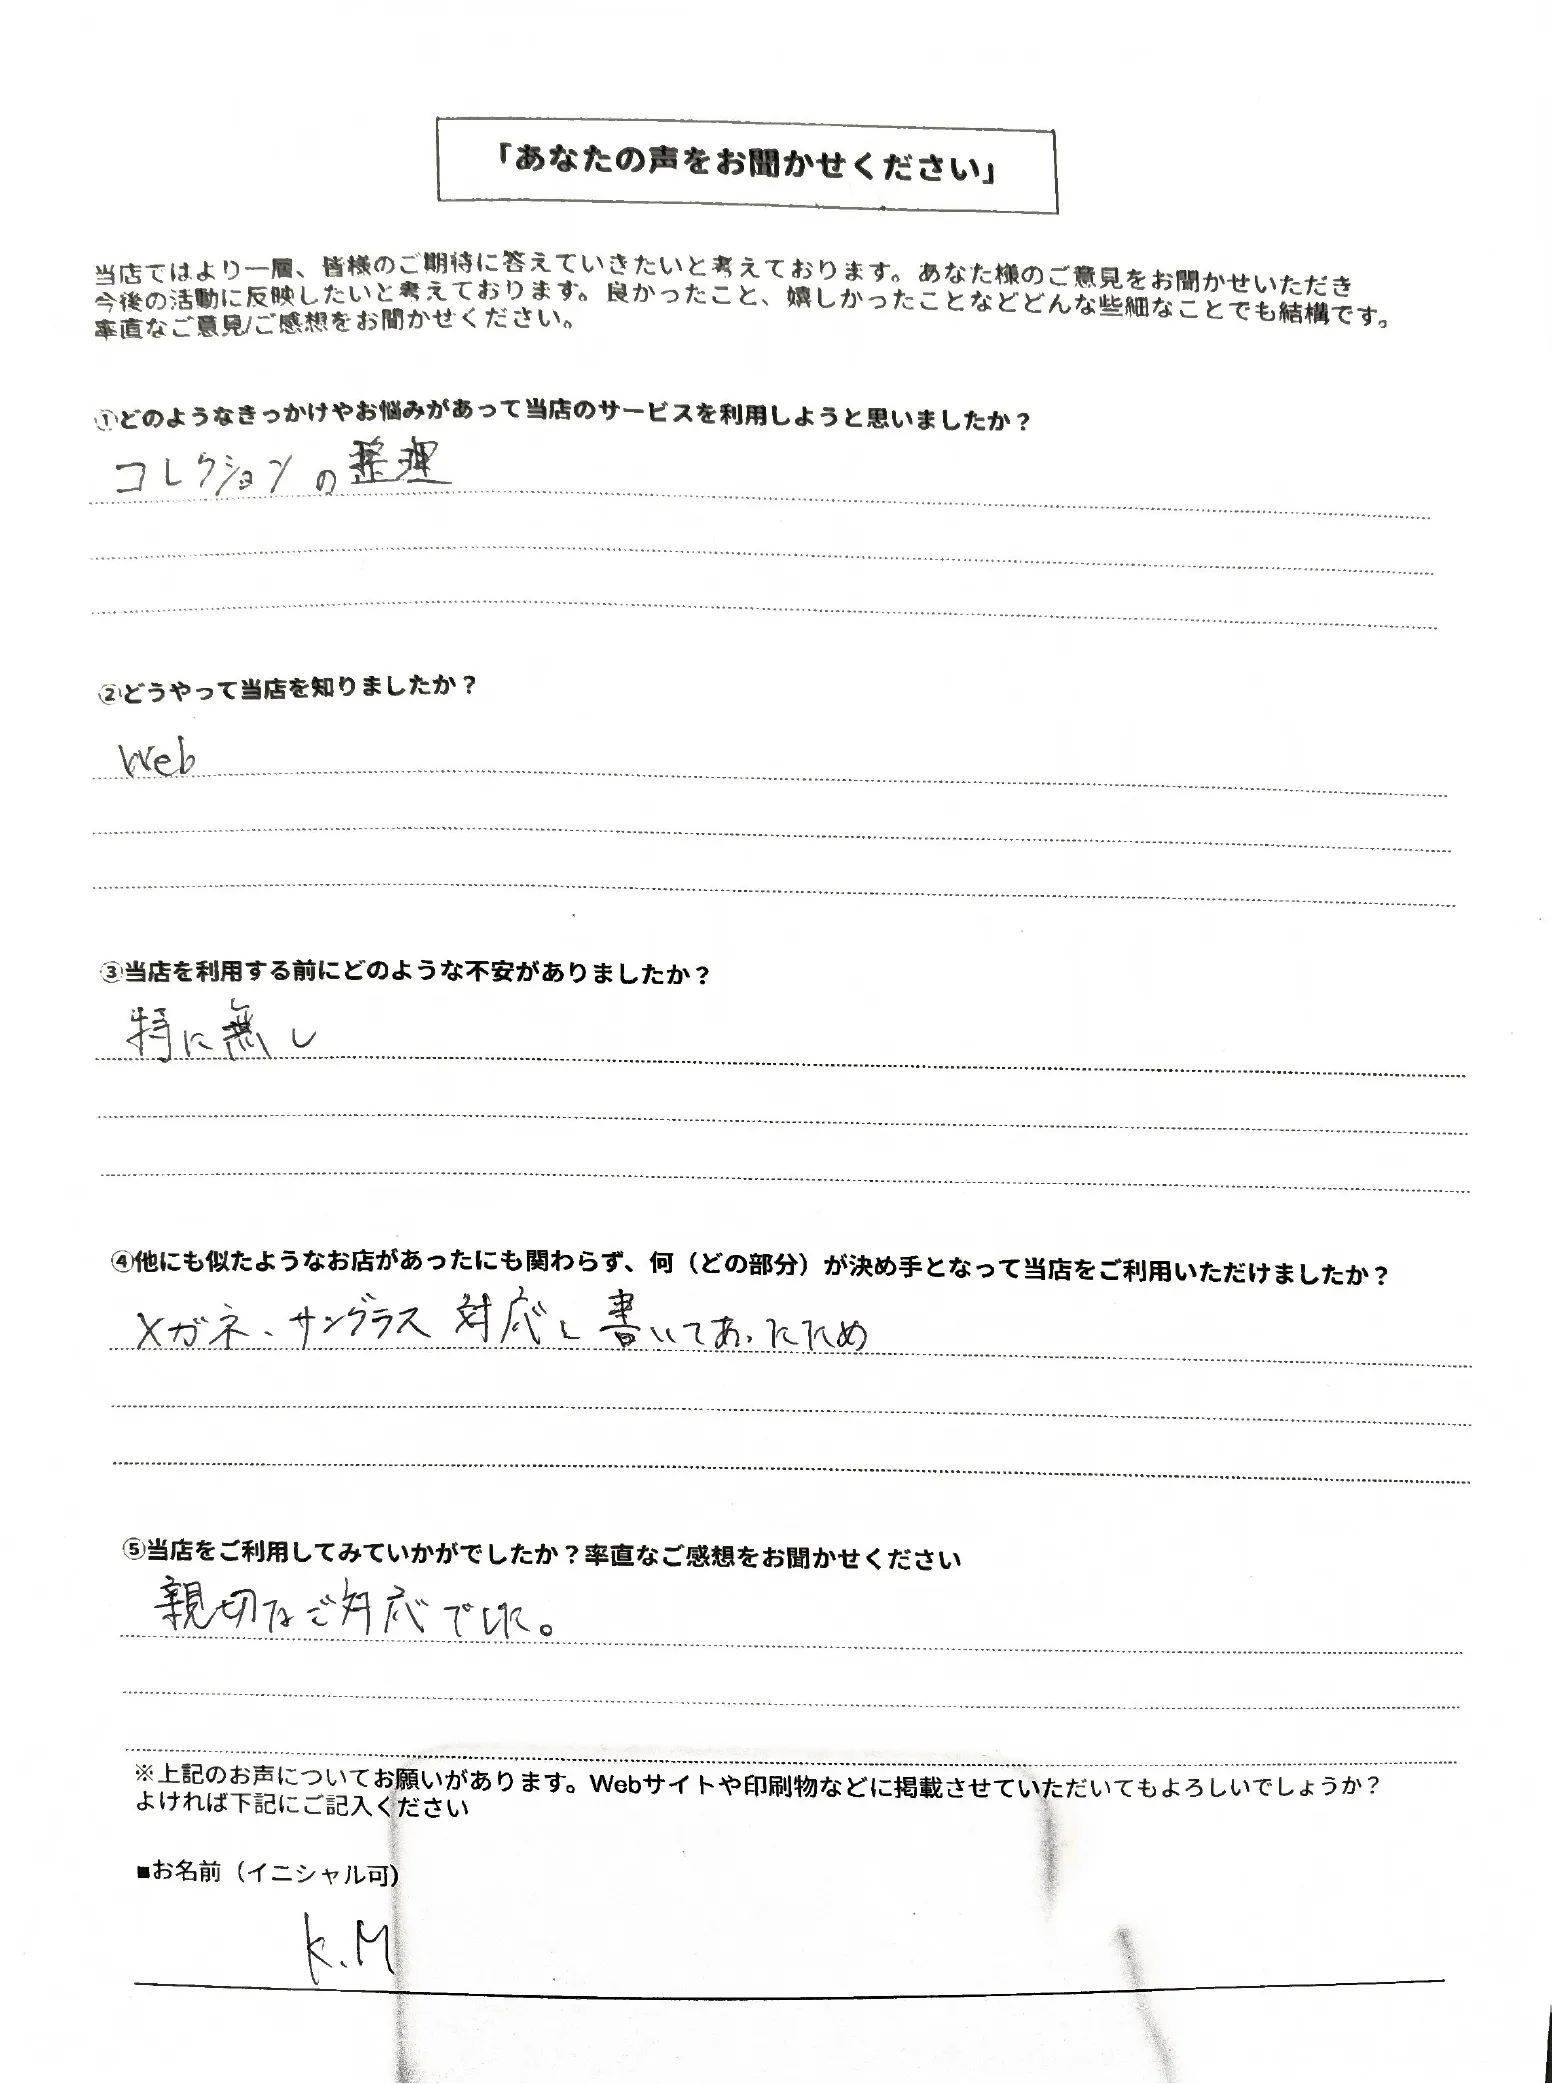 「あなたの声をお聞かせください」
当店ではより一層、皆様のご期待に答えていきたいと考えております。あなた様のご意見をお聞かせいただき
今後の活動に反映したいと考えております。良かったこと、嬉しかったことなどどんな些細なことでも結構です。
率直なご意見/ご感想をお聞かせください。
①どのようなきっかけやお悩みがあって当店のサービスを利用しようと思いましたか？
コレクションの整理
②どうやって当店を知りましたか？
Web
③当店を利用する前にどのような不安がありましたか？
特に無し
④他にも似たようなお店があったにも関わらず、何（どの部分）が決め手となって当店をご利用いただけましたか？
メガネ、サングラス対応と書いてあったため
⑤当店をご利用してみていかがでしたか？率直なご感想をお聞かせください
親切なご対応でした。
※上記のお声についてお願いがあります。Webサイトや印刷物などに掲載させていただいてもよろしいでしょうか？
よければ下記にご記入ください
■お名前（イニシャル可）
K.M